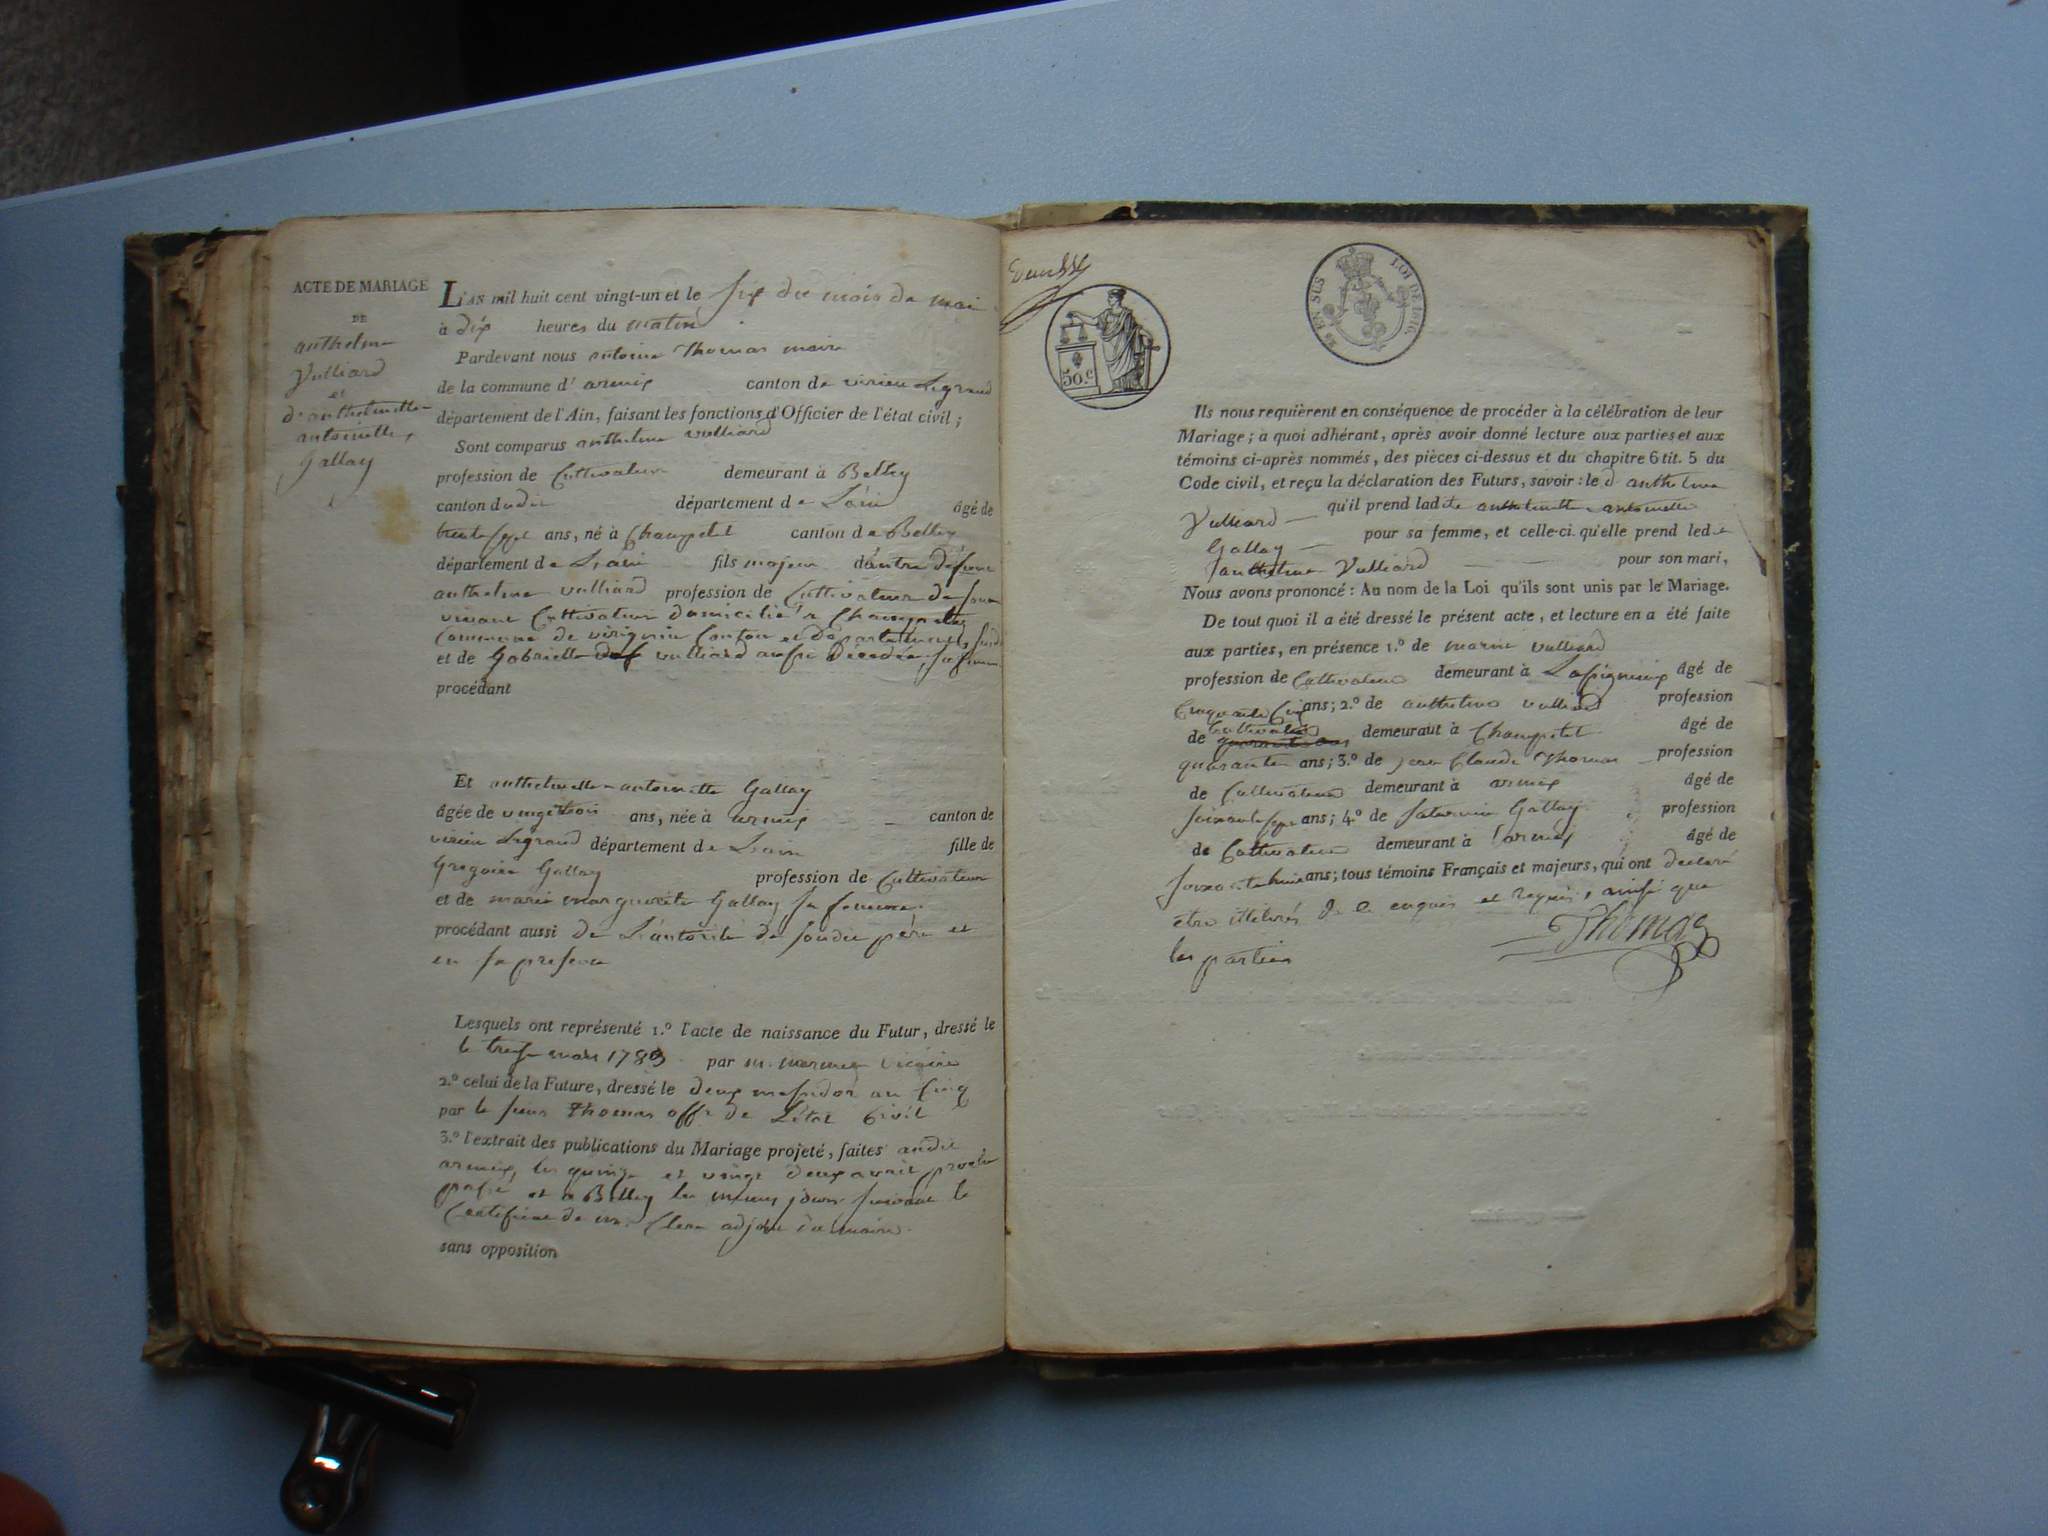 ACTE DE MARIAGE
DE
anthelme
Vulliard
et
d'anthelmette
antoinette
Gallay
L'AN mil huit cent vingt-un et le six du mois de mai
à dix heures du matin
Pardevant nous antoine Thomas maire
de la commune d' armix canton de virieu Legrand
département de l'Ain, faisant les fonctions d'Officier de l'état civil ;
Sont comparus anthelme vulliard
profession de Cultivateur demeurant à Belley
canton dudit département de L'ain âgé de
trente sept ans, né à Champetel canton de Belley
département de L'ain fils majeur d'autre défunt
anthelme vulliard profession de Cultivateur de son
vivant Cultivateur domicilié à Champetel
Commune de virignin Canton et Département susd
et de Gabrielle vulliard aussi Décédée, sa femme
procédant
Et anthelmette antoinette Gallay
âgée de vingt trois ans, née à armix canton de
virieu Legrand département de L'ain fille de
Gregoire Gallay profession de Cultivateur
et de marie marguerite Gallay sa femme
procédant aussi de L'autorité de sondit père et
en sa presence
Lesquels ont représenté 1.º l'acte de naissance du Futur, dressé le
le treize mars 1783 par m. vicaire
2.º celui de la Future, dressé le deux messidor an Cinq
par le sieur Thomas off. de L'état Civil
3.º l'extrait des publications du Mariage projeté, faites audit
armix, les quinze et vingt deux avril proche
passé et a Belley les mêmes jours suivant le
Certificat de mr. Clerc adjoint du maire.
sans opposition
50.c
EN SUS
LOI DE 1816
Ils nous requièrent en conséquence de procéder à la célébration de leur
Mariage ; a quoi adhérant, après avoir donné lecture aux parties et aux
témoins ci-après nommés, des pièces ci-dessus et du chapitre 6 tit. 5 du
Code civil, et reçu la déclaration des Futurs, savoir : le d anthelme
Vulliard qu'il prend ladite anthelmette antoinette
Gallay pour sa femme, et celle-ci qu'elle prend ledit
anthelme Vulliard pour son mari,
Nous avons prononcé : Au nom de la Loi qu'ils sont unis par le Mariage.
De tout quoi il a été dressé le présent acte, et lecture en a été faite
aux parties, en présence 1.º de marin vulliard
profession de Cultivateur demeurant à âgé de
Cinquante Cinq ans ; 2.º de anthelme vulliard profession
de Cultivateur demeurant à Champetel âgé de
quarante ans ; 3.º de jean Claude Thomas profession
de Cultivateur demeurant à armix âgé de
soixante sept ans ; 4.º de Saturnin Gallay profession
de Cultivateur demeurant à armix âgé de
soixante huit ans ; tous témoins Français et majeurs, qui ont declaré
etre illiterés de ce enquis et requis, ainsi que
les parties
Thomas